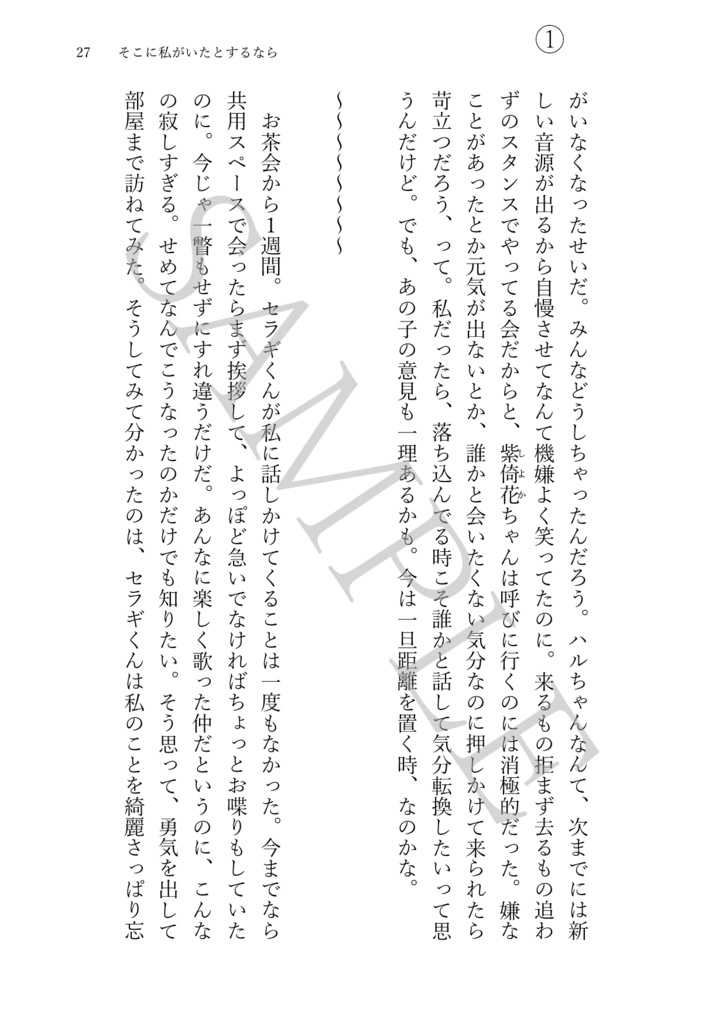 27 そこに私がいたとするなら
①
がいなくなったせいだ。みんなどうしちゃったんだろう。ハルちゃんなんて、次までには新
しい音源が出るから自慢させてなんて機嫌よく笑ってたのに。来るもの拒まず去るもの追わ
ずのスタンスでやってる会だからと、紫倚花ちゃんは呼びに行くのには消極的だった。嫌な
しよか
ことがあったとか元気が出ないとか、誰かと会いたくない気分なのに押しかけて来られたら
苛立つだろう、って。私だったら、落ち込んでる時こそ誰かと話して気分転換したいって思
うんだけど。でも、あの子の意見も一理あるかも。今は一旦距離を置く時、なのかな。
～～～～～～～
お茶会から1週間。セラギくんが私に話しかけてくることは一度もなかった。今までなら
共用スペースで会ったらまず挨拶して、よっぽど急いでなければちょっとお喋りもしていた
のに。今じゃ一瞥もせずにすれ違うだけだ。あんなに楽しく歌った仲だというのに、こんな
の寂しすぎる。せめてなんでこうなったのかだけでも知りたい。そう思って、勇気を出して
部屋まで訪ねてみた。そうしてみて分かったのは、セラギくんは私のことを綺麗さっぱり忘
SAMPLE